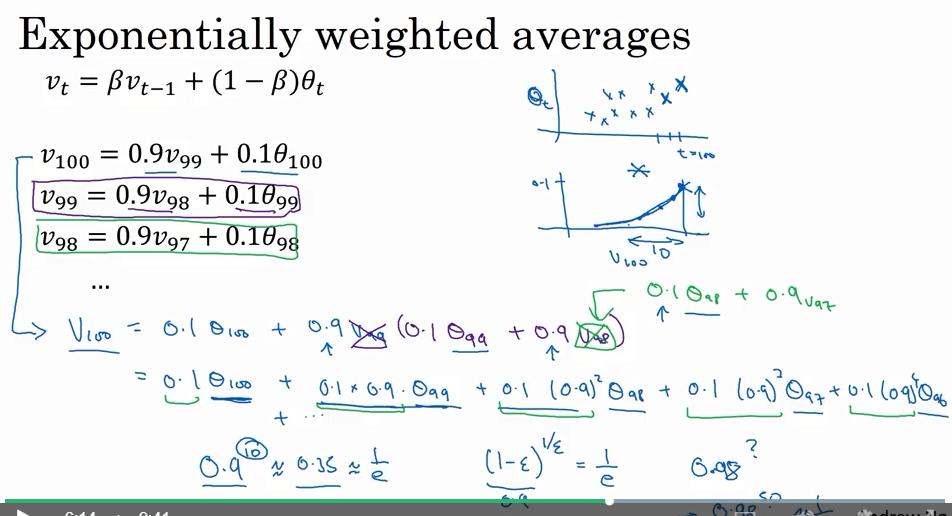 Exponentially weighted averages
v_t = βv_{t−1} + (1 − β)θ_t
v_100 = 0.9v_99 + 0.1θ_100
v_99 = 0.9v_98 + 0.1θ_99
v_98 = 0.9v_97 + 0.1θ_98
...
θ_t
t=100
0.1
10
V_100
0.1 θ_98 + 0.9 V_97
V_100 = 0.1 θ_100 + 0.9 V_99 (0.1 θ_99 + 0.9 V_98)
= 0.1 θ_100 + 0.1 × 0.9 · θ_99 + 0.1 (0.9)² θ_98 + 0.1 (0.9)³ θ_97 + 0.1 (0.9)⁴ θ_96
+ ...
0.9^10 ≈ 0.35 ≈ 1/e
(1-ε)^{1/ε} = 1/e
0.98^?
0.9